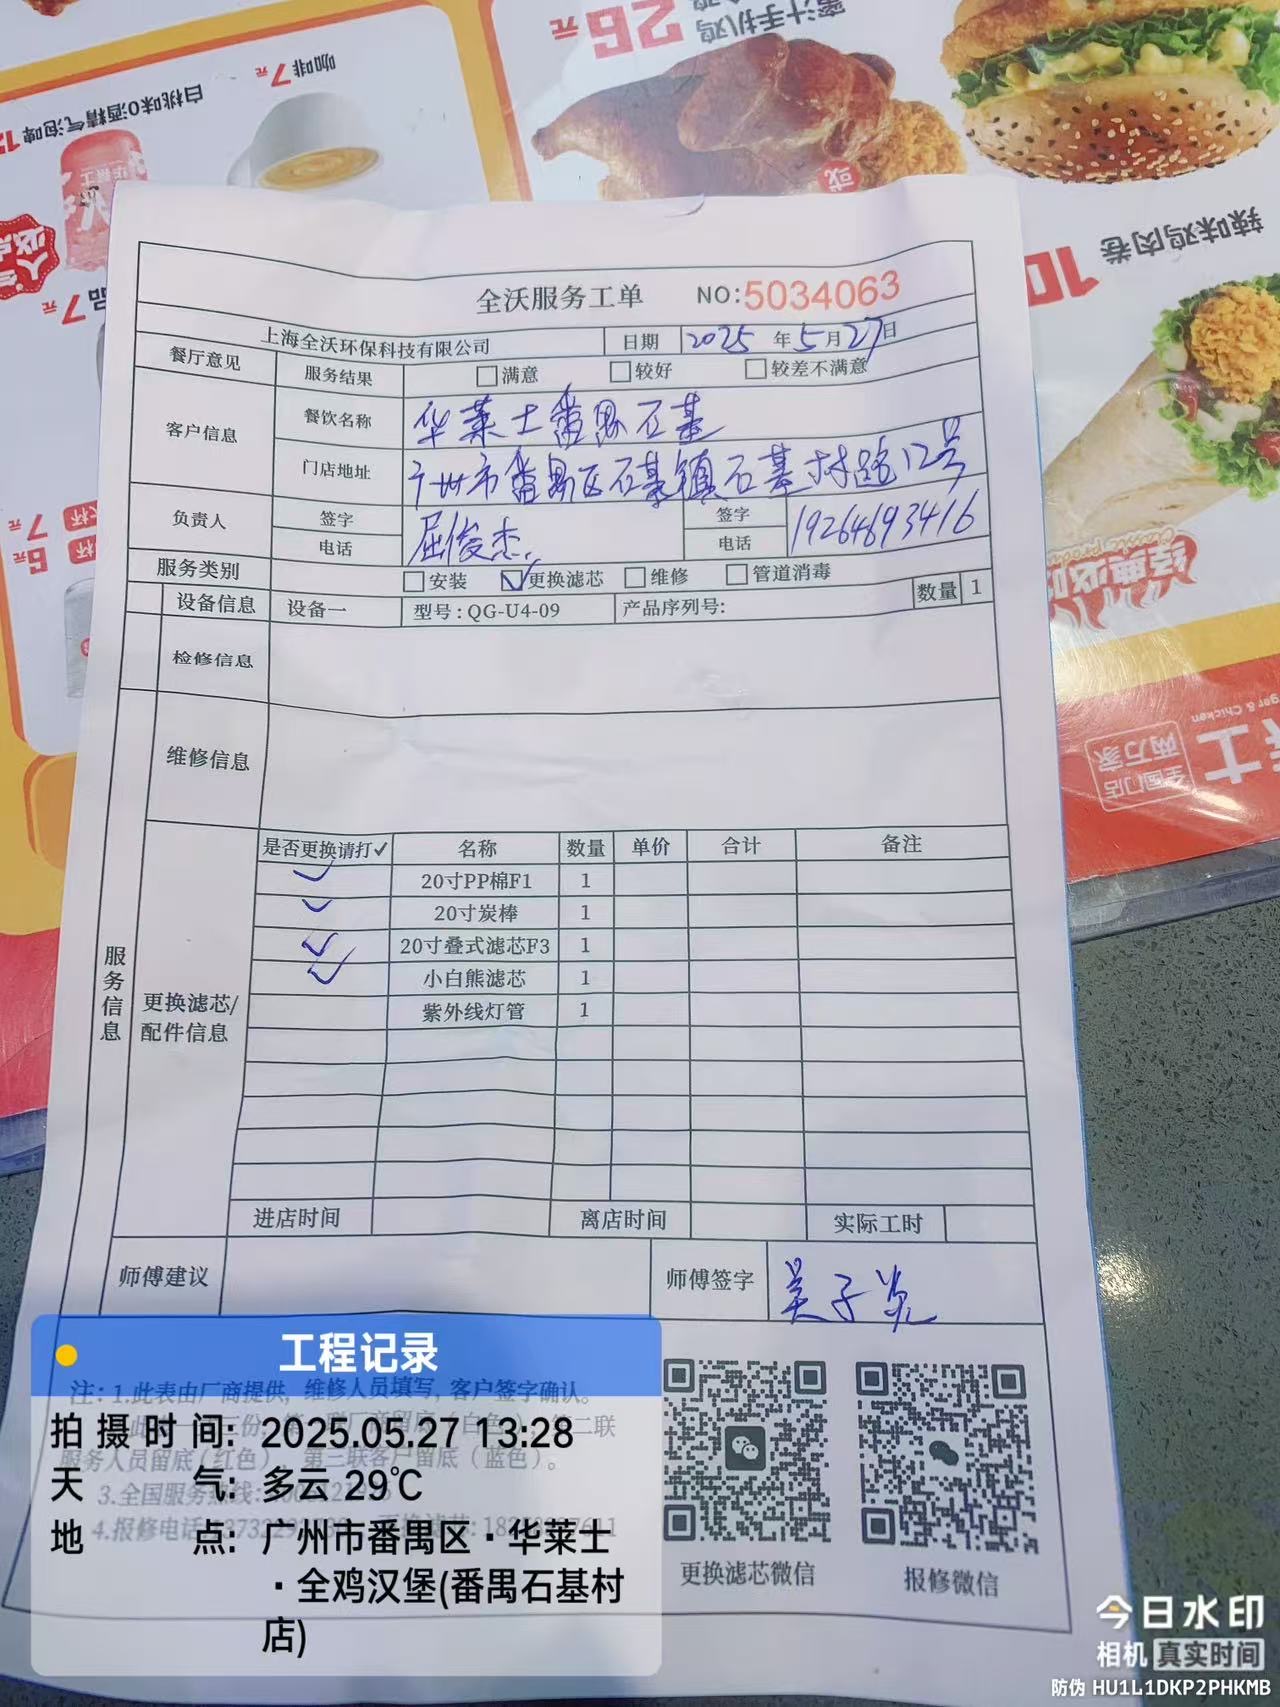 咖啡7元
白桃味0酒精气泡啤
蜜汁手扒鸡
26元
或
辣味鸡肉卷
10
7元
全国门店
两万家
士
全沃服务工单 NO:5034063
上海全沃环保科技有限公司 日期 2025年5月27日
餐厅意见 服务结果 □满意 □较好 □较差不满意
客户信息 餐饮名称 华莱士番禺石基
门店地址 广州市番禺区石基镇石基村路12号
负责人 签字 屈俊杰 签字 19264693416
电话 电话
服务类别 □安装 ☑更换滤芯 □维修 □管道消毒
设备信息 设备一 型号:QG-U4-09 产品序列号: 数量 1
检修信息
维修信息
服务信息
更换滤芯/
配件信息
是否更换请打✓ 名称 数量 单价 合计 备注
✓ 20寸PP棉F1 1
✓ 20寸炭棒 1
✓ 20寸叠式滤芯F3 1
✓ 小白熊滤芯 1
紫外线灯管 1
进店时间 离店时间 实际工时
师傅建议 师傅签字 吴子
注:1.此表由厂商提供,维修人员填写,客户签字确认。
第二联
服务人员留底(红色),第三联客户留底(蓝色)。
3.全国服务热线:
4.报修电话:
更换滤芯微信 报修微信
工程记录
拍摄时间: 2025.05.27 13:28
天气: 多云 29℃
地点: 广州市番禺区·华莱士
·全鸡汉堡(番禺石基村
店)
今日水印
相机 真实时间
防伪 HU1L1DKP2PHKMB